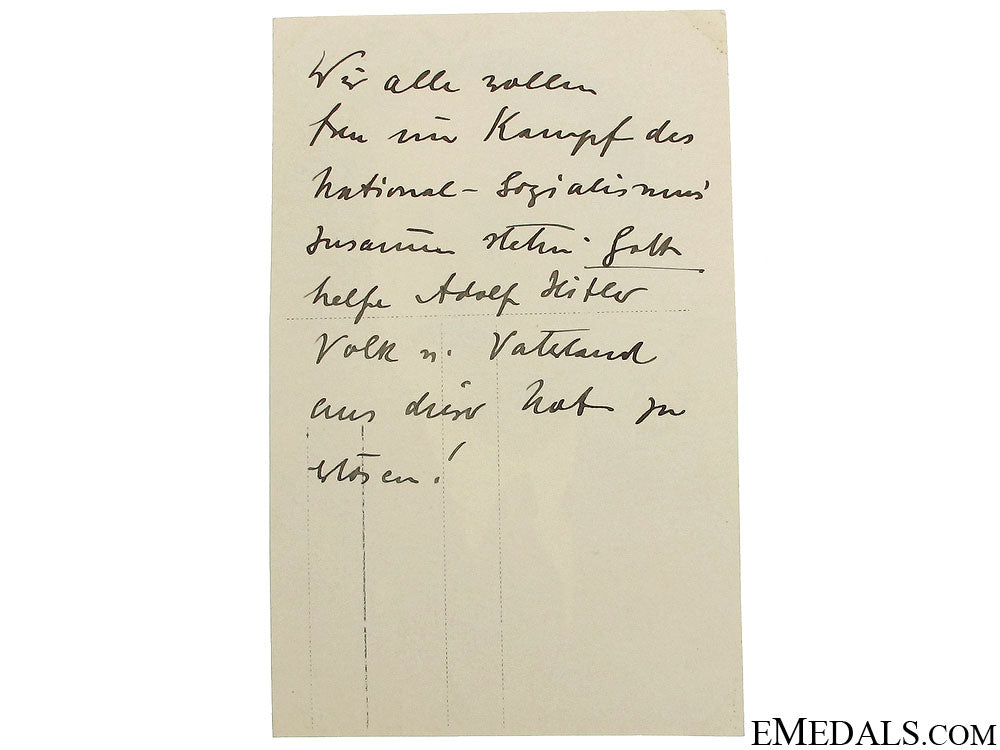 Wir alle wollen
treu im Kampf des
National-Sozialismus
zusammen stehn. Gott
helfe Adolf Hitler
Volk u. Vaterland
aus dieser Not zu
erlösen!
EMEDALS.COM